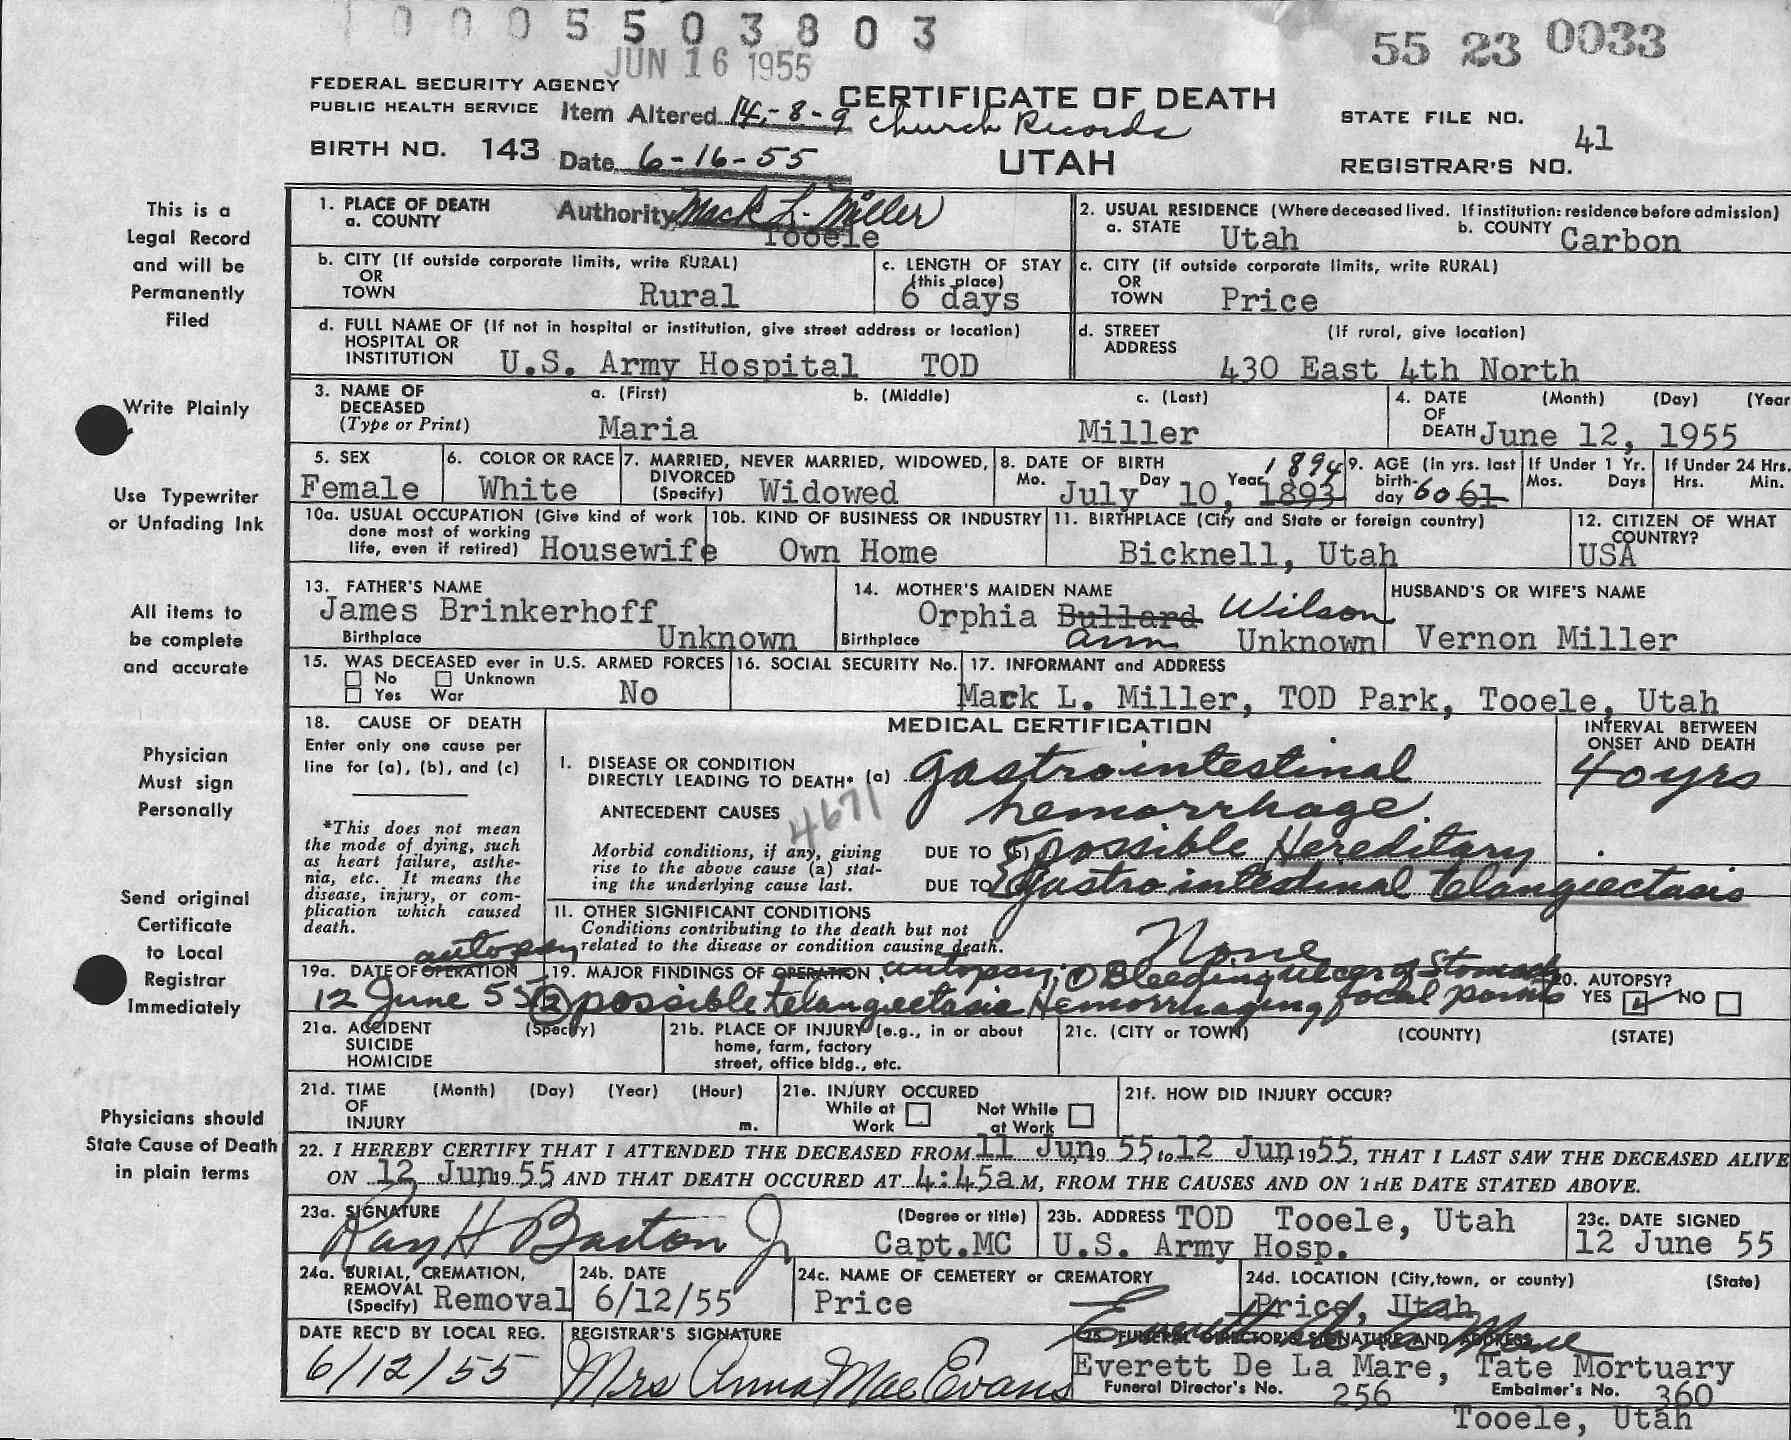 0 0 0 5 5 0 3 8 0 3
JUN 16 1955
55 23 0033
FEDERAL SECURITY AGENCY
PUBLIC HEALTH SERVICE
Item Altered 14-8-9
CERTIFICATE OF DEATH
Church Records
STATE FILE NO.
BIRTH NO. 143
Date 6-16-55
UTAH
REGISTRAR'S NO. 41
This is a
Legal Record
and will be
Permanently
Filed
Write Plainly
Use Typewriter
or Unfading Ink
All items to
be complete
and accurate
Physician
Must sign
Personally
Send original
Certificate
to Local
Registrar
Immediately
Physicians should
State Cause of Death
in plain terms
1. PLACE OF DEATH
a. COUNTY
Authority Mack L. Miller
Tooele
2. USUAL RESIDENCE (Where deceased lived. If institution: residence before admission)
a. STATE Utah b. COUNTY Carbon
b. CITY (If outside corporate limits, write RURAL)
OR
TOWN Rural
c. LENGTH OF STAY
(this place)
6 days
c. CITY (if outside corporate limits, write RURAL)
OR
TOWN Price
d. FULL NAME OF (If not in hospital or institution, give street address or location)
HOSPITAL OR
INSTITUTION U.S. Army Hospital TOD
d. STREET (If rural, give location)
ADDRESS
430 East 4th North
3. NAME OF a. (First) b. (Middle) c. (Last)
DECEASED
(Type or Print) Maria Miller
4. DATE (Month) (Day) (Year
OF
DEATH June 12, 1955
5. SEX
Female
6. COLOR OR RACE
White
7. MARRIED, NEVER MARRIED, WIDOWED,
DIVORCED
(Specify) Widowed
8. DATE OF BIRTH 1894
Mo. Day Year
July 10, 1893
9. AGE (In yrs. last
birth-
day 60 61
If Under 1 Yr.
Mos. Days
If Under 24 Hrs.
Hrs. Min.
10a. USUAL OCCUPATION (Give kind of work
done most of working
life, even if retired) Housewife
10b. KIND OF BUSINESS OR INDUSTRY
Own Home
11. BIRTHPLACE (City and State or foreign country)
Bicknell, Utah
12. CITIZEN OF WHAT
COUNTRY?
USA
13. FATHER'S NAME
James Brinkerhoff
Birthplace Unknown
14. MOTHER'S MAIDEN NAME
Orphia Bullard Wilson
Birthplace Ann Unknown
HUSBAND'S OR WIFE'S NAME
Vernon Miller
15. WAS DECEASED ever in U.S. ARMED FORCES
No Unknown
Yes War
No
16. SOCIAL SECURITY No.
17. INFORMANT and ADDRESS
Mack L. Miller, TOD Park, Tooele, Utah
18. CAUSE OF DEATH
Enter only one cause per
line for (a), (b), and (c)
*This does not mean
the mode of dying, such
as heart failure, asthe-
nia, etc. It means the
disease, injury, or com-
plication which caused
death.
MEDICAL CERTIFICATION
INTERVAL BETWEEN
ONSET AND DEATH
I. DISEASE OR CONDITION
DIRECTLY LEADING TO DEATH* (a) Gastrointestinal 40 yrs
hemorrhage.
ANTECEDENT CAUSES
4671
Morbid conditions, if any, giving
rise to the above cause (a) stat-
ing the underlying cause last.
DUE TO (b) possible Hereditary
DUE TO Gastrointestinal telangiectasis
II. OTHER SIGNIFICANT CONDITIONS
Conditions contributing to the death but not
related to the disease or condition causing death.
None
autopsy
19a. DATE OF OPERATION
12 June 55
19. MAJOR FINDINGS OF OPERATION autopsy; (1) Bleeding ulcer of Stomach
(2) possible telangiectasia Hemorrhaging focal points
20. AUTOPSY?
YES NO
21a. ACCIDENT (Specify)
SUICIDE
HOMICIDE
21b. PLACE OF INJURY (e.g., in or about
home, farm, factory
street, office bldg., etc.
21c. (CITY or TOWN) (COUNTY) (STATE)
21d. TIME (Month) (Day) (Year) (Hour)
OF
INJURY m.
21e. INJURY OCCURED
While at Not While
Work at Work
21f. HOW DID INJURY OCCUR?
22. I HEREBY CERTIFY THAT I ATTENDED THE DECEASED FROM 11 Jun 19 55 to 12 Jun 1955, THAT I LAST SAW THE DECEASED ALIVE
ON 12 Jun 19 55 AND THAT DEATH OCCURED AT 4:45a M, FROM THE CAUSES AND ON THE DATE STATED ABOVE.
23a. SIGNATURE (Degree or title)
Ray H Barton Jr Capt.MC
23b. ADDRESS TOD Tooele, Utah
U.S. Army Hosp.
23c. DATE SIGNED
12 June 55
24a. BURIAL, CREMATION,
REMOVAL
(Specify) Removal
24b. DATE
6/12/55
24c. NAME OF CEMETERY or CREMATORY
Price
24d. LOCATION (City, town, or county) (State)
Price, Utah
DATE REC'D BY LOCAL REG.
6/12/55
REGISTRAR'S SIGNATURE
Mrs Anna Mae Evans
25. FUNERAL DIRECTOR'S SIGNATURE AND ADDRESS
Everett De La Mare
Everett De La Mare, Tate Mortuary
Funeral Director's No. 256 Embalmer's No. 360
Tooele, Utah